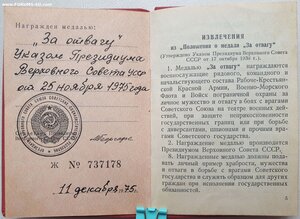 FORUMS-SU.COM
Награжден медалью:
„За отвагу"
Указом Президиума
Верховного Совета СССР
от 25 ноября 1975 года
Ж № 737178
11 декабря 75.
ИЗВЛЕЧЕНИЯ
из „Положения о медали „За отвагу"
(Утверждено Указом Президиума Верховного Совета
СССР от 17 октября 1938 г.)
1. Медалью „За отвагу" награждаются
военнослужащие рядового, командного и
начальствующего состава Рабоче-Крестьян-
ской Красной Армии, Военно-Морского
Флота и Войск пограничной охраны за
личное мужество и отвагу в боях с врагами
Советского Союза на театре военных дей-
ствий, при защите неприкосновенности
государственных границ или при борьбе
с диверсантами, шпионами и прочими вра-
гами Советского государства.
2. Награждение медалью производится
Президиумом Верховного Совета СССР.
8. Награжденные медалью должны пода-
вать личный пример храбрости, мужества
и отваги в борьбе с врагами Советского